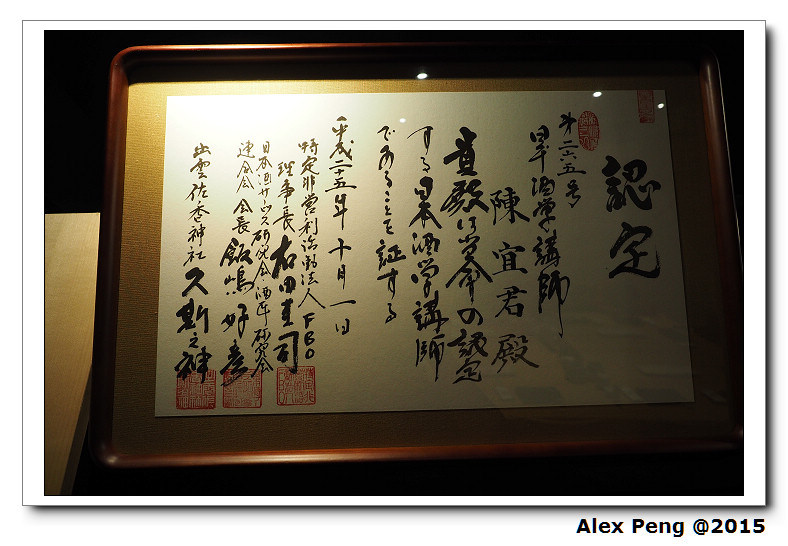 認定
第二六五号
日本酒学講師
陳宜君殿
貴殿は当会の認定
する日本酒学講師
であることを証する
平成二十五年十月一日
特定非営利活動法人FBO
理事長 右田圭司
日本酒サービス研究会酒匠研究会
連合会 会長
出雲佐香神社 久斯之神
Alex Peng @2015